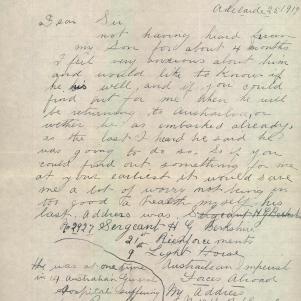 Adelaide 25 1919
Dear Sir
not having heard from
my Son for about 4 months
I feel very anxious about him
and would like to know if
he is well, and if you could
find out for me when he will
be returning to Australia, or
wether he as embarked already,
as the last I heard he said he
was going to do so. So if you
could find out something for me
at your earliest it would save
me a lot of worry not being in
too good a health myself, his
last address was, Sergeant H G Berkshire
Sergeant H G Berkshire
21st Reinforcements
9 Light Horse
Australian Imperial
Forces Abroad
He was at one time
in 14 Australian General
Hospital suffering
My address